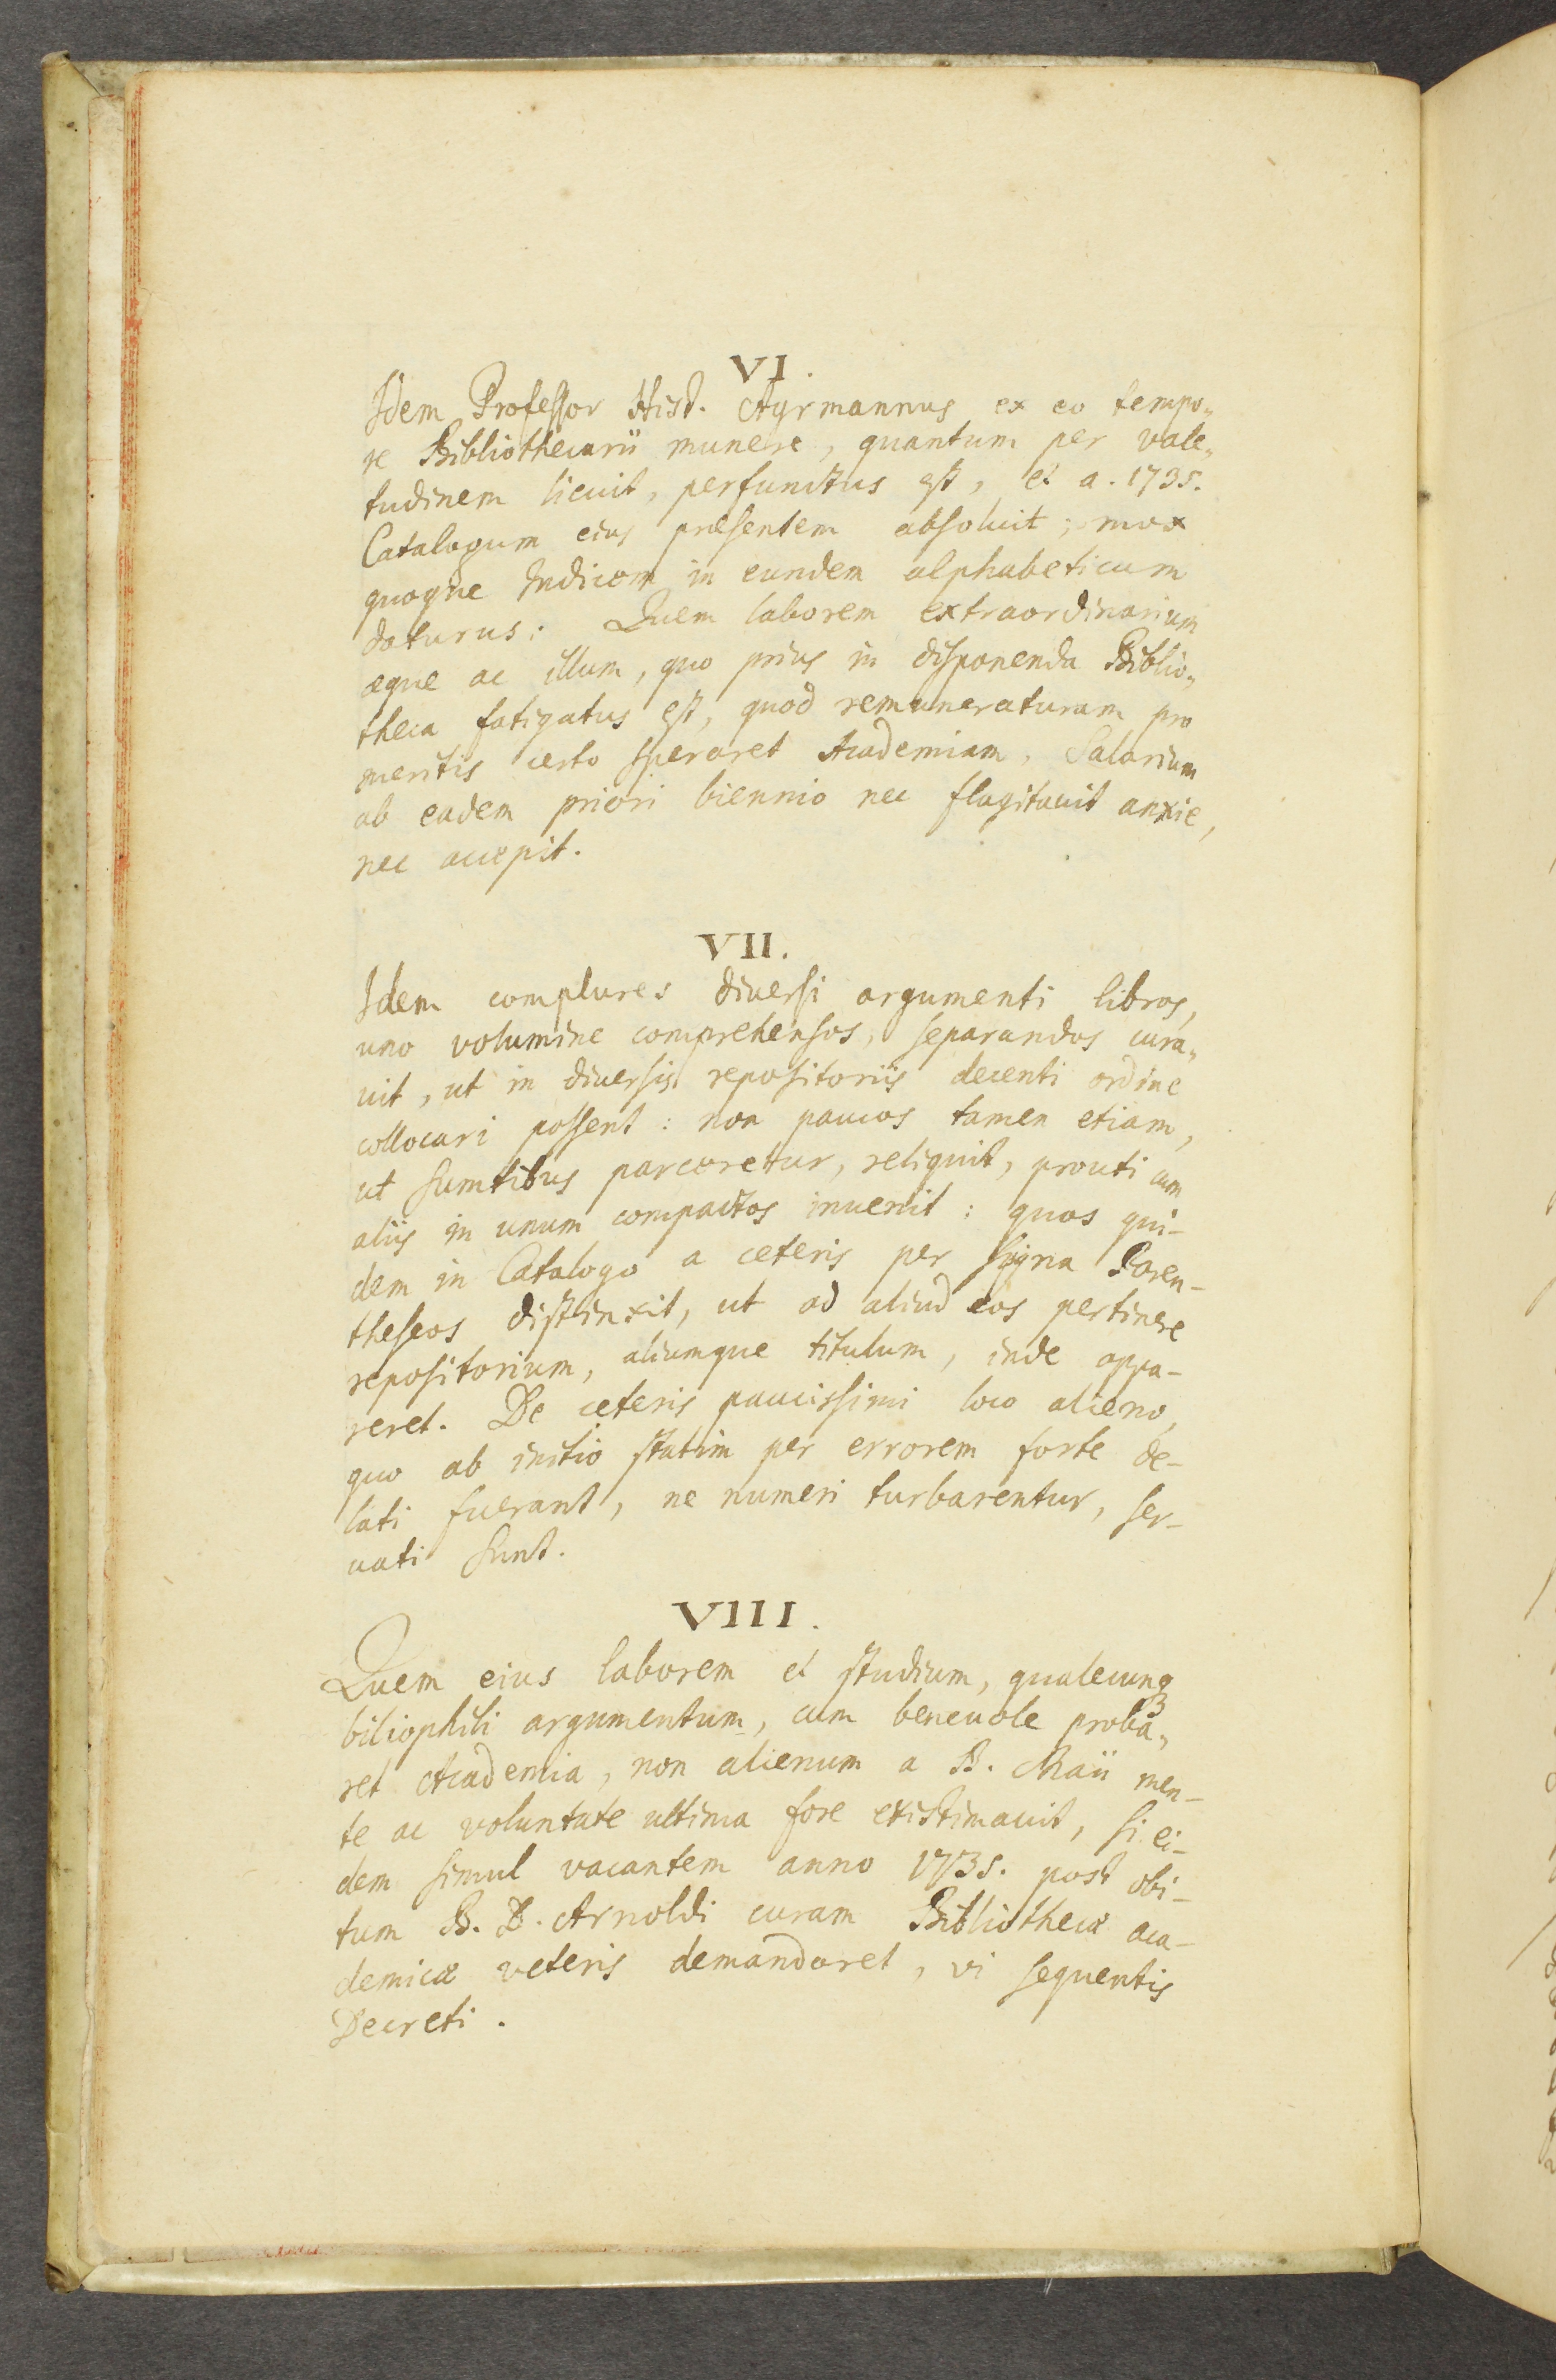 VI.
Idem Professor Hist. Ayrmannus ex eo tempo„
re Bibliothecarii munere, quantum per vale„
tudinem licuit, perfunctus est, et a. 1735.
Catalogum eius præsentem absoluit; mox
quoque Indicem in eundem alphabeticum
daturus: Quem laborem extraordinarium
æque ac illum, quo prius in disponenda Biblio„
theca fatigatus est, quod remuneraturam pro
meritis certo speraret Academiam, Salarium
ab eadem priori biennio nec flagitauit anxie,
nec accepit.
VII.
Idem complures diuersi argumenti libros,
uno volumine comprehensos, separandos cura„
uit, ut in diuersis repositoriis decenti ordine
collocari possent: non paucos tamen etiam,
ut sumtibus parceretur, reliquit, prouti cum
aliis in unum compactos inuenit: quos qui-
dem in Catalogo a ceteris per signa Paren-
theseos distinxit, ut ad aliud eos pertinere
repositorium, aliumque titulum, inde appa-
reret. De ceteris paucissimi loco alieno,
quo ab initio statim per errorem forte de-
lati fuerant, ne numeri turbarentur, ser-
uati sunt.
VIII.
Quem eius laborem et studium, qualecunq3
biliophili argumentum, cum beneuole proba„
ret Academia, non alienum a B. Maii men-
te ac voluntate ultima fore existimauit, si ei-
dem simul vacantem anno 1735. post obi-
tum B. D. Arnoldi curam Bibliothecæ aca-
demicæ veteris demandaret, vi sequentis
Decreti.